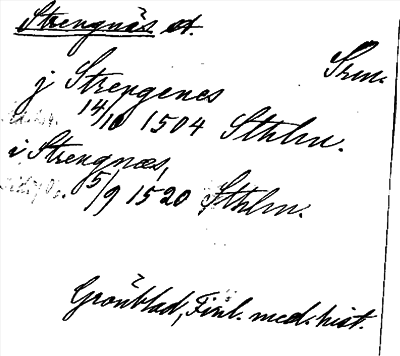 Strengnäs st.
Srm.
j Strengenes
14/10 1504 Sthlm.
i Strengnæs,
5/9 1520 Sthlm.
Grönblad, Finl. med. hist.